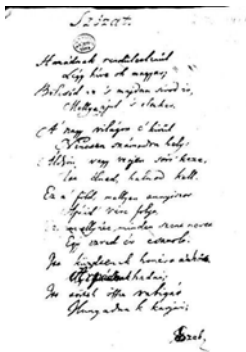 Szózat.
Hazádnak rendületlenűl
Légy híve oh magyar;
Bölcsőd ez 's majdan sírod is,
Melly ápol 's eltakar.
A' nagy világon e' kívűl
Nincsen számodra hely;
Áldjon, vagy verjen sors keze,
Itt élned, halnod kell.
Ez a' föld, mellyen annyiszor
Apáid' vére folyt;
Ez, mellyhez minden szent nevet
Egy ezred év csatolt.
Itt küzdtenek honért a' hős
Árpádnak hadai;
Itt törtek össze rabigát
Hunyadnak karjai;